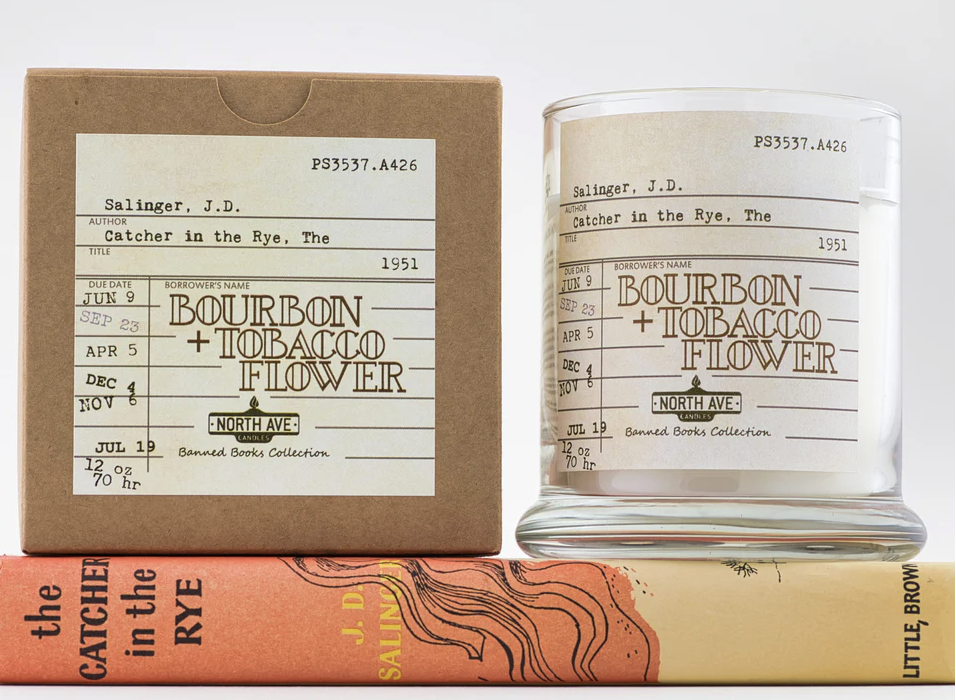 PS3537.A426
Salinger, J.D.
AUTHOR
Catcher in the Rye, The
TITLE
1951
DUE DATE
BORROWER'S NAME
JUN 9
SEP 23
APR 5
DEC 4
NOV 6
JUL 19
12 oz
70 hr
BOURBON
+TOBACCO
FLOWER
NORTH AVE
CANDLES
Banned Books Collection
PS3537.A426
Salinger, J.D.
AUTHOR
Catcher in the Rye, The
TITLE
1951
DUE DATE
BORROWER'S NAME
JUN 9
SEP 23
APR 5
DEC 4
NOV 6
JUL 19
12 oz
70 hr
BOURBON
+TOBACCO
FLOWER
NORTH AVE
CANDLES
Banned Books Collection
the
CATCHER
in the
RYE
J. D.
SALINGER
LITTLE, BROWN